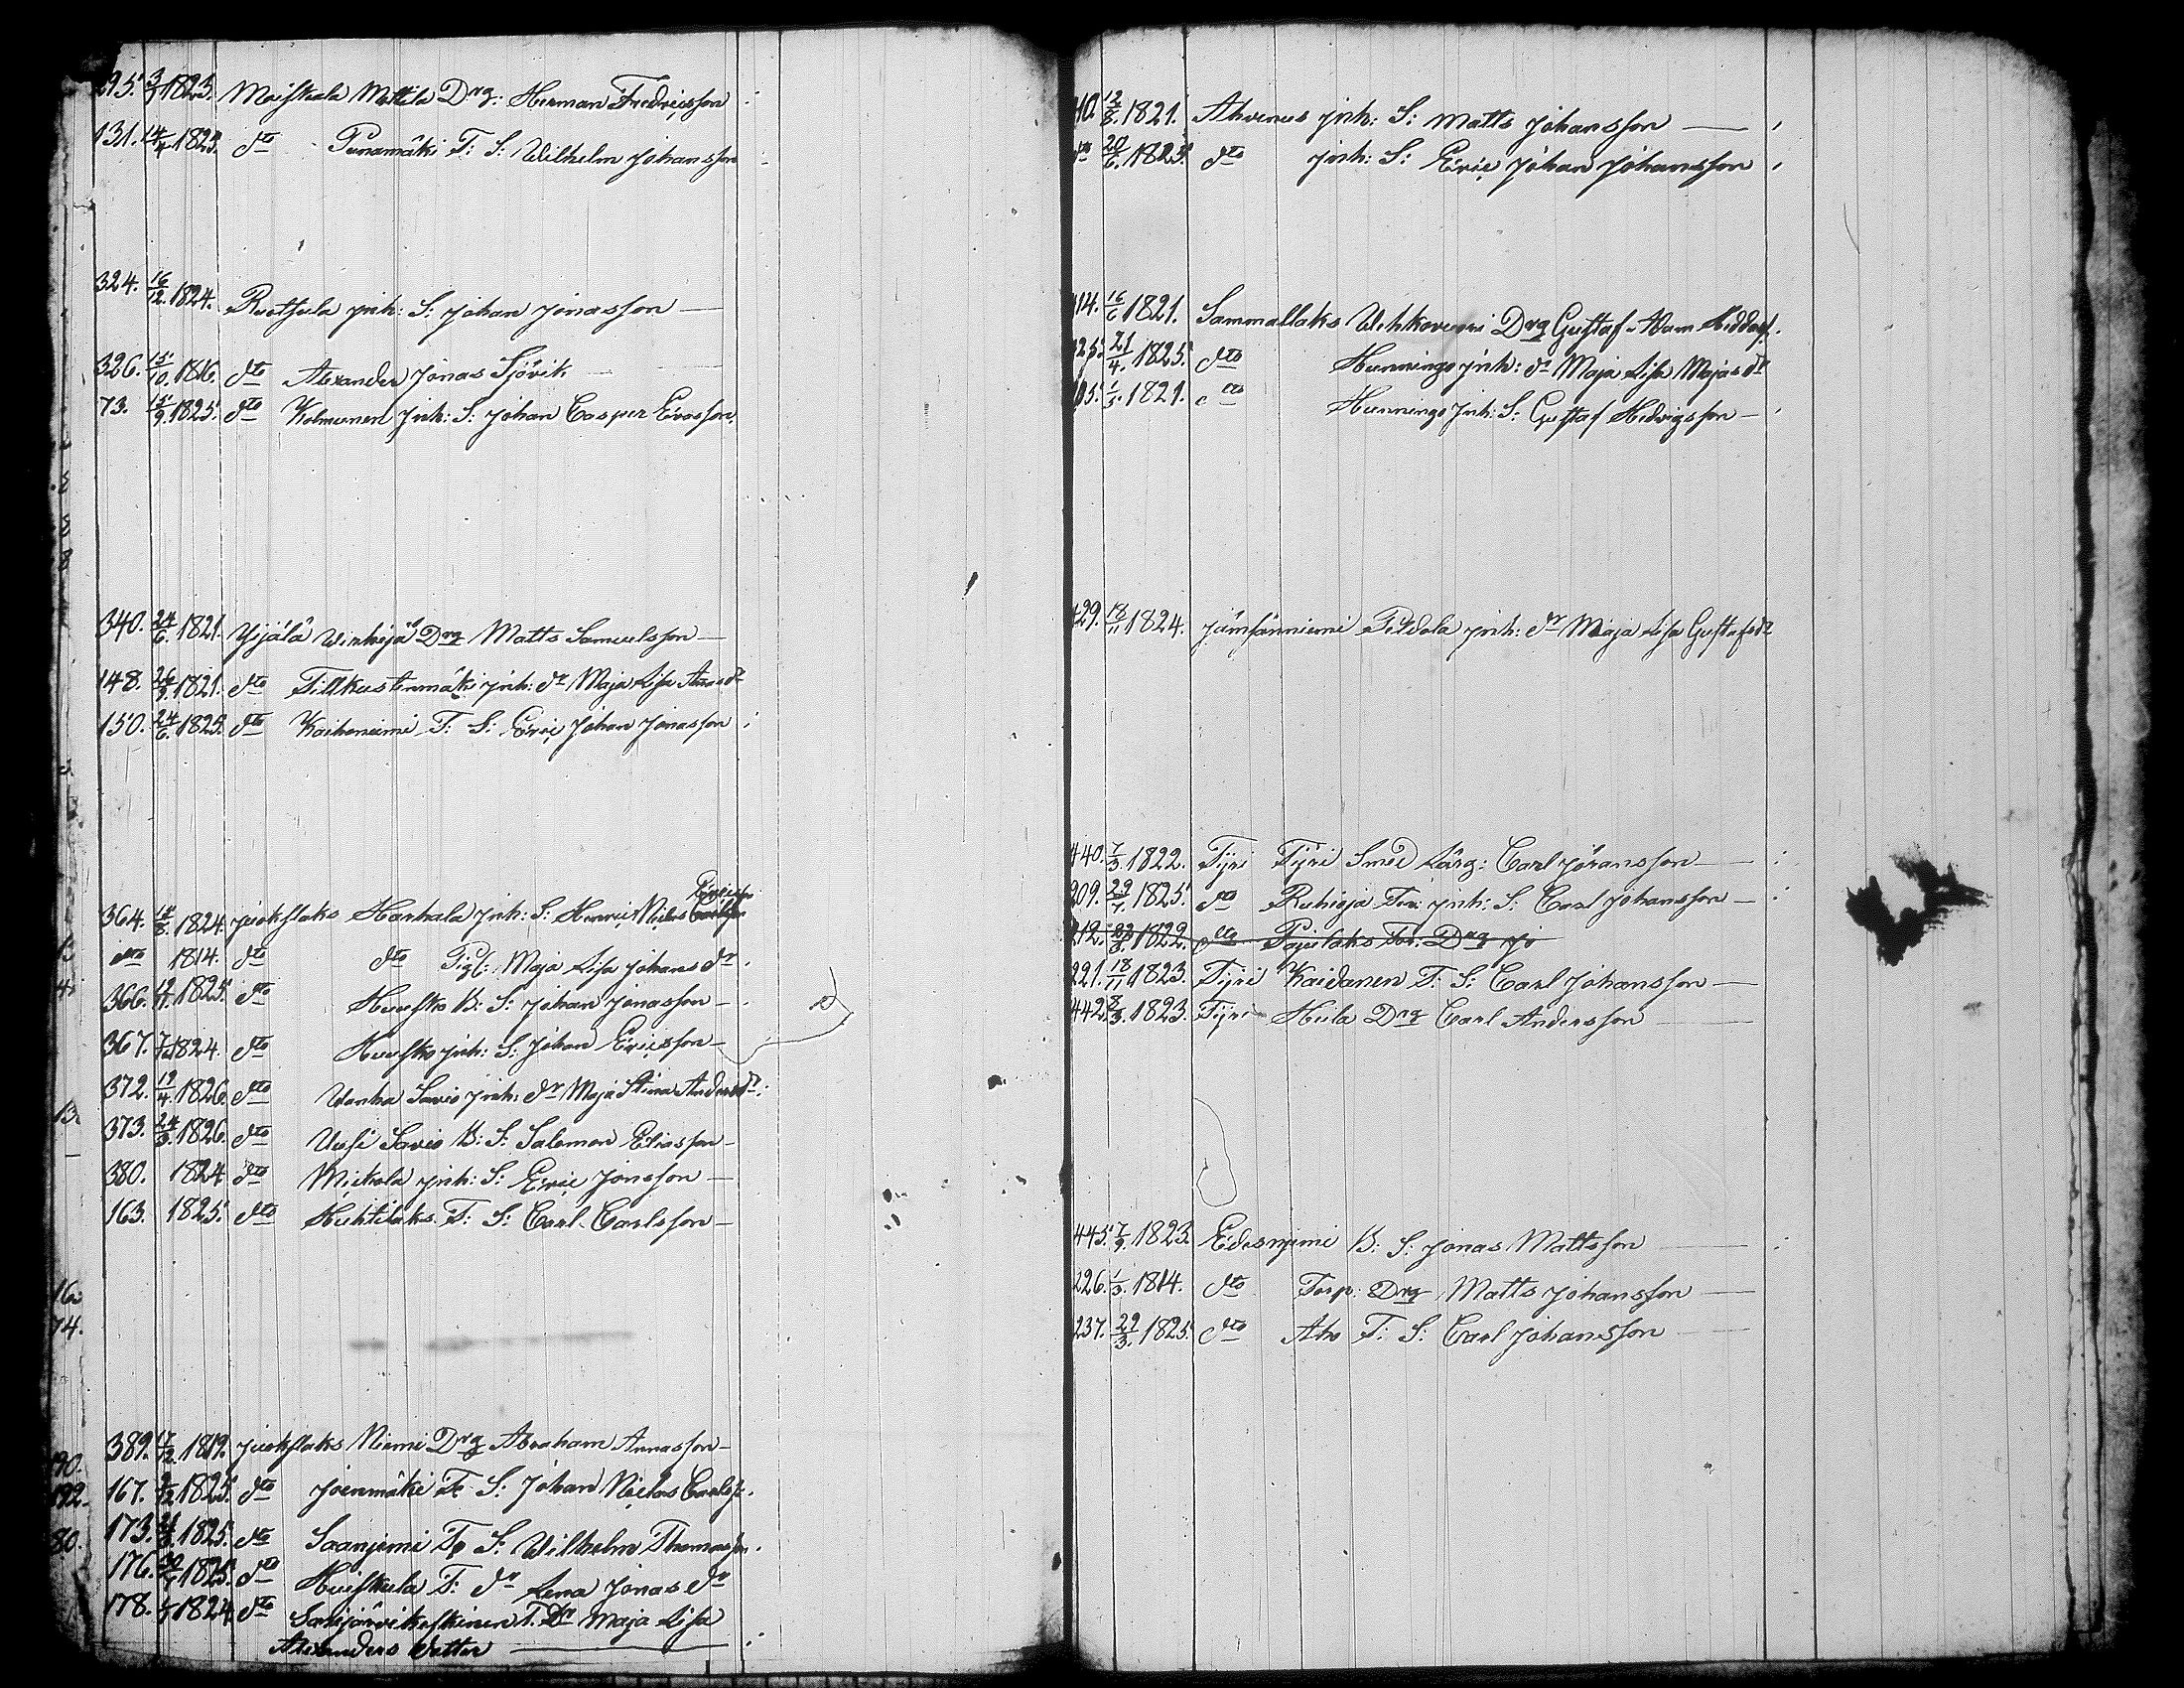 295. 3/9 1823. Moiskala Mattila Drg: Herman Fredricsson
131. 14/4 1825. dto Punamäki T: S: Wilhelm Johansson
324. 16/12. 1824. Ruotsula Inh: S: Johan Jonasson
326. 15/10. 1816. dto Alexander Jonas Sjövik
73. 15/9. 1825. dto Kolmunen Inh: S: Johan Casper Evasson.
340. 24/6. 1821. Yijälä Winkijä Drg Matts Samuelsson
148. 26/9. 1821. dto Tillkustenmäki Inh: dr Maja Lisa Annsdr
150. 24/6. 1825. dto Kaiheniemi T: S: Eric Johan Jonasson
Ericss.
364. 18/8. 1824. Juokslaks Harhala Inh: S: Henric Niclas Carlsson
dito 1814. dto dto Pig: Maja Lisa Johansdr.
366. 1825. dto Huusko B: S: Johan Jonasson
367. 1824. dto Huusko Inh: S: Johan Ericsson
372. 19/4. 1826. dto Wanha Savio Inh: dr Maja Stina Andersdr:
373. 24/3. 1826. dto Uusi Savio B: S: Salomon Eliasson
380. 1824 dto Mickola Inh: S: Eric Jonsson
163. 1825. dto Huhtilaks T: S: Carl Carlsson
389. 17/12. 1819. Juokslaks Niemi Drg Abraham Annasson
167. 1825. dto Joenmäki T: S: Johan Niclas Carlss.
173. 1825. dto Saanjemi Tp S: Wilhelm Thomasson.
176. 1825. dto Huiskula T: dr Lena Jonasdr
178. 1824. dto Sarkjärvikeskinen T. Dr Maja Lisa
Alexanders Dotter
410. 12/8. 1821. Ahvenus Inh: S: Matts Johansson
dto 20/6. 1825. dto Inh: S: Eric Johan Johansson
414. 16/6 1821. Sammallaks Wehkovuori Drg Gustaf Adam
425. 21/4. 1825. dto Hunninge Inh: dr Maja Lisa Majasdr
1821. dto Hunninge Inh: S: Gustaf Hedvigsson
429. 18/11 1824. Jämsänniemi Pildola Inh: dr Maja Lisa Gustafsdr
440. 7/3. 1822. Tyri Tyri Smed Lärg: Carl Jöransson
209. 29/7. 1825. dto Ruhioja Tor: Inh: S: Carl Johansson
212. 1822. dto Pajulaks Tor: Drg Jo
221. 18/11 1823. Tyri Kaidanen T: S: Carl Johansson
442. 8/3. 1823. Tyri Heila Drg Carl Andersson
445. 7/9. 1823. Edesnjemi B: S: Jonas Mattsson
226. 1/3. 1814. dto Torp: Drg Matts Johansson
237. 29/3. 1825. dto Aho T: S: Carl Johansson